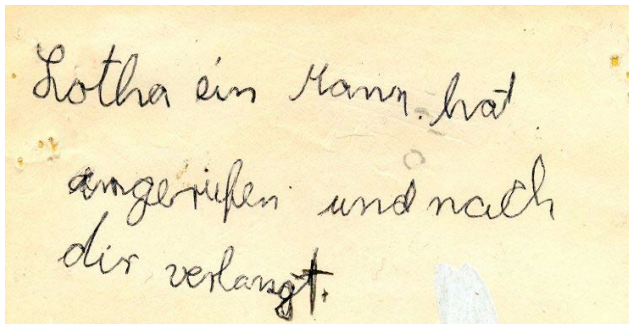 Lotha ein Mann. hat
angerufen und nach
dir verlangt.